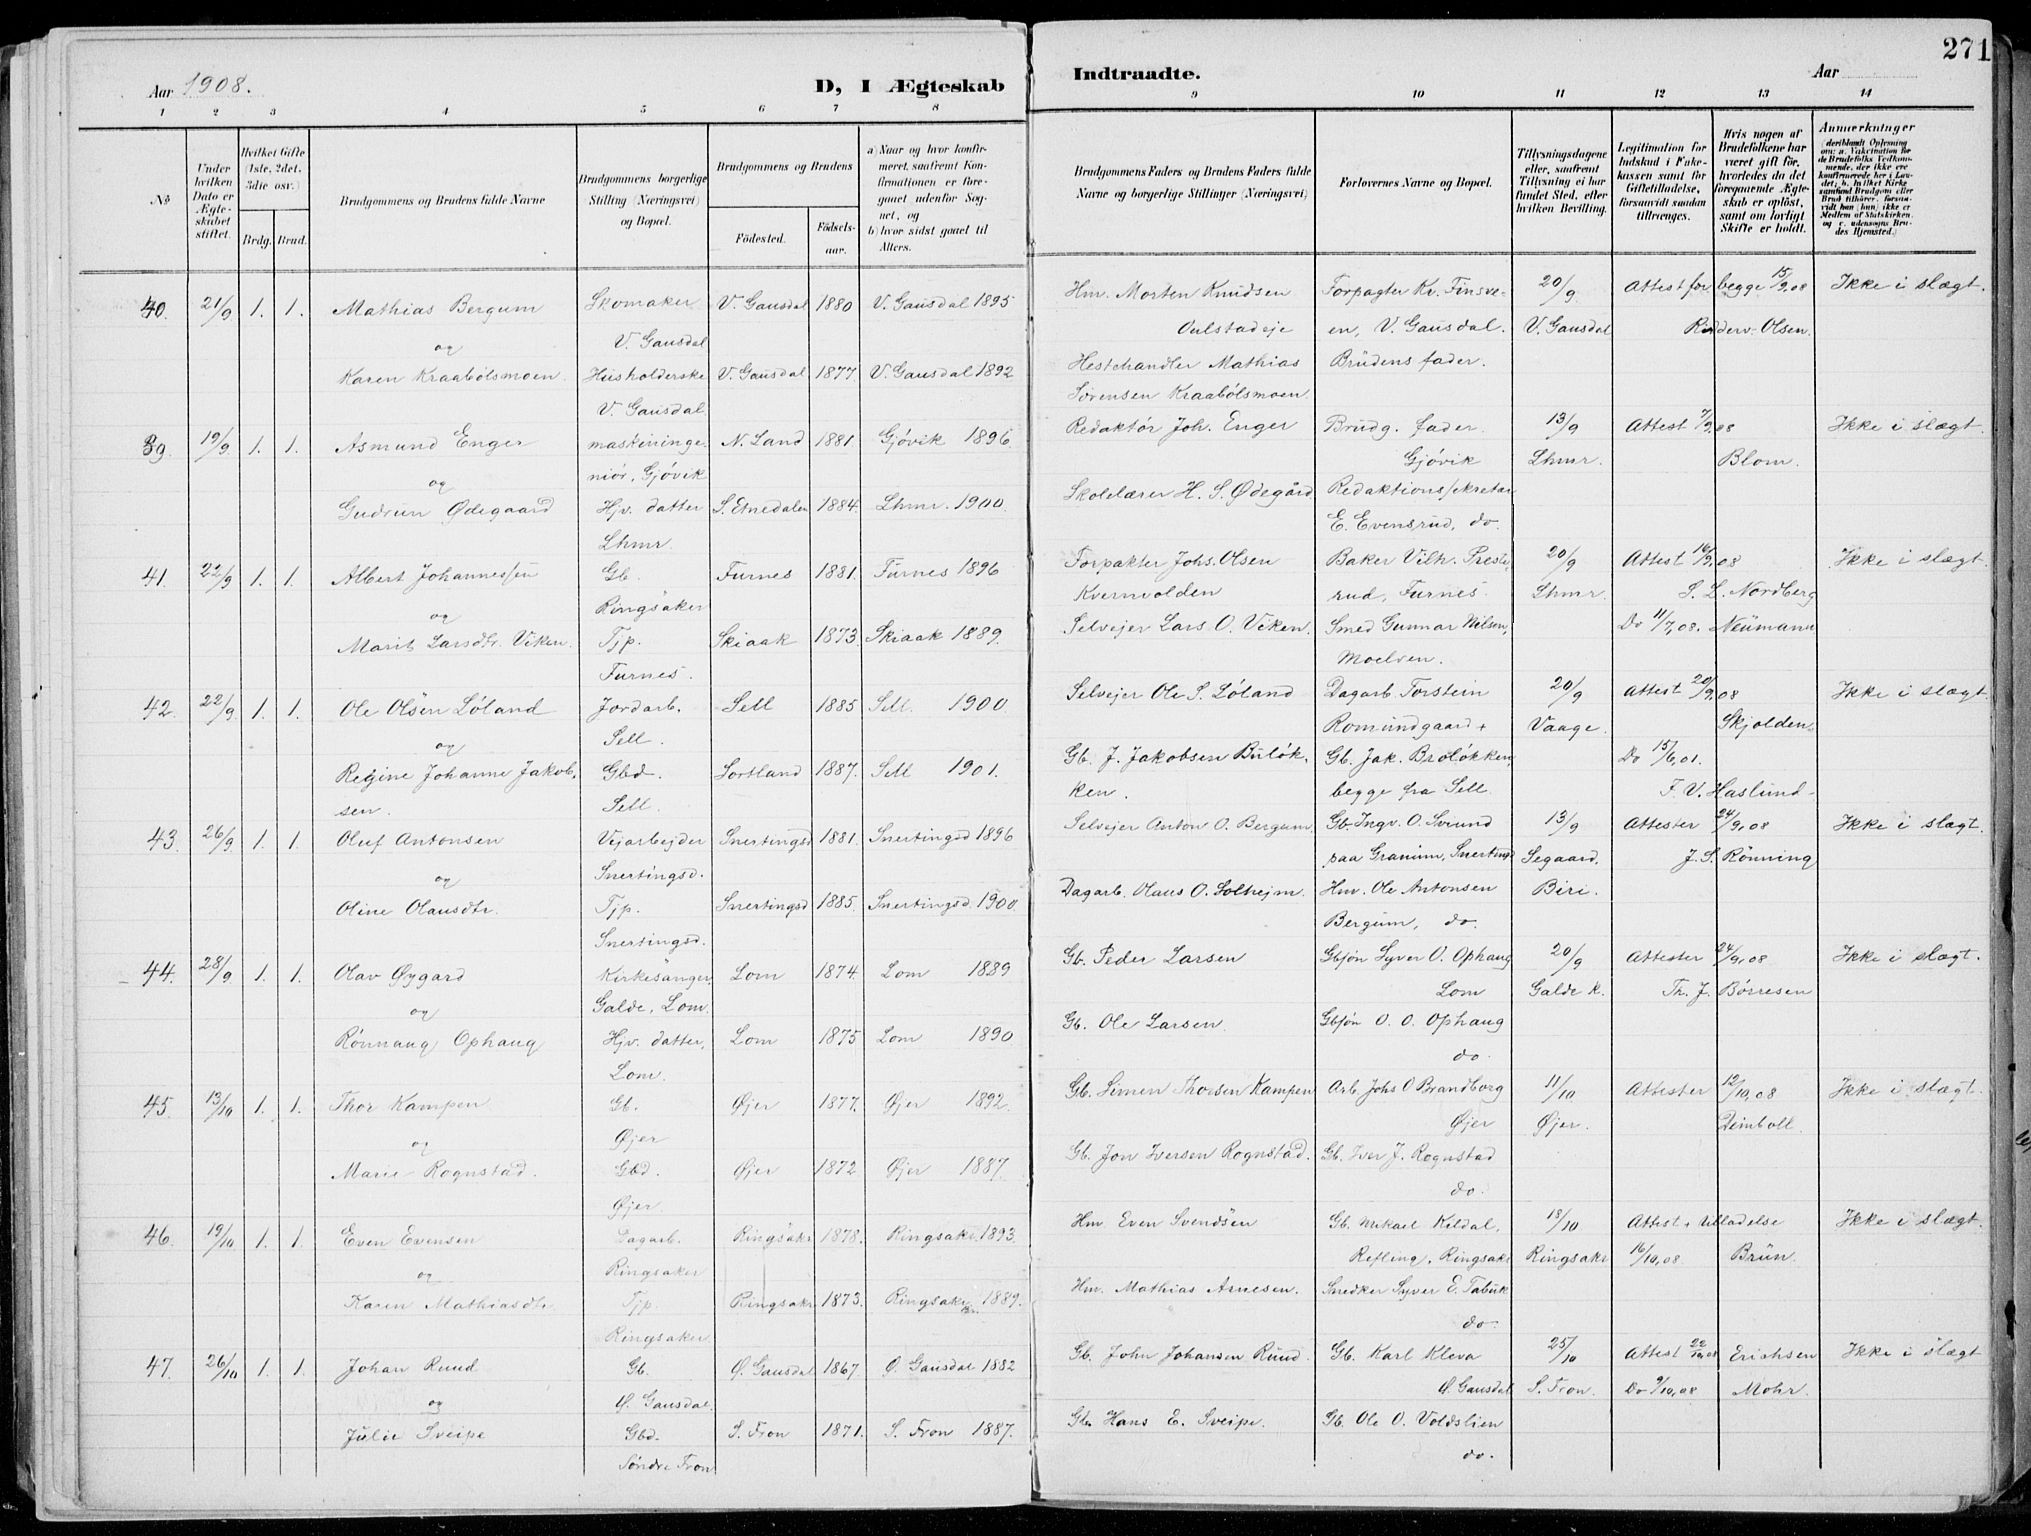 271
Aar 1908.
D, I Ægteskab
Indtraadte.
Aar
1 2 3 4 5 6 7 8
9 10 11 12 13 14
No
Under hvilken Dato er Ægteskabet stiftet.
Hvilket Gifte (1ste, 2det, 3die osv.)
Brdg. Brud.
Brudgommens og Brudens fulde Navne
Brudgommens borgerlige Stilling (Næringsvei) og Bopæl.
Brudgommens og Brudens
Fødested.
Fødselsaar.
a) Naar og hvor konfirmeret, saafremt Konfirmationen er foregaaet udenfor Sognet, og
b) hvor sidst gaaet til Alters.
Brudgommens Faders og Brudens Faders fulde Navne og borgerlige Stillinger (Næringsvei)
Forlovernes Navne og Bopæl.
Tillysningsdagene eller, saafremt Tillysning ei har fundet Sted, efter hvilken Bevilling.
Legitimation for Indskud i Enkekassen samt for Giftetilladelse, forsaavidt saadan tiltrænges.
Hvis nogen af Brudefolkene har været gift før, hvorledes da det foregaaende Ægteskab er opløst, samt om lovligt Skifte er holdt.
Anmærkninger (deriblandt Oplysning om: a. Vakcination for de Brudefolks Vedkommende, der ikke ere konfirmerede her i Landet; b. hvilket Kirkesamfund Brudgom eller Brud tilhører, forsaavidt han (hun) ikke er Medlem af Statskirken, og c. udensogns Brudes Hjemsted.)
40. 21/9 1. 1. Mathias Bergum Skomaker V. Gausdal 1880 V. Gausdal 1895 Hm. Morten Knudsen Forpagter Kr. Finsve- 20/9 Attest for begge 15/9.08 Ikke i slægt.
og V. Gausdal Oulstadeje en, V. Gausdal. V. Gausdal Olsen.
Karen Kraabølsmoen. Husholderske V. Gausdal 1877. V. Gausdal 1892 Hestehandler Mathias Brudens fader.
V. Gausdal Sørensen Kraabølsmoen.
39. 19/9 1. 1. Asmund Enger maskininge- N. Land 1881. Gjøvik 1896. Redaktør Joh. Enger Brudg. fader. 13/9 Attest 7/9.08 Ikke i slægt.
og niør, Gjøvik Gjøvik Lhmr. Blom.
Gudrun Ødegaard Hjv. datter S. Etnedalen 1884. Lhmr. 1900. Skolelærer H. S. Ødegård Redaktionssekretær
Lhmr. E. Evensrud, do.
41. 22/9 1. 1. Albert Johannessen Gb. Furnes 1881. Furnes 1896 Forpakter Johs. Olsen Baker Vilh. Preste- 20/9 Attest 16/9.08 Ikke i slægt
og Ringsaker Kvernvolden rud, Furnes. Lhmr. S. L. Nordberg
Marit Larsdtr. Viken. Tjp. Skiaak 1873. Skiaak 1889. Selvejer Lars O. Viken. Smed Gunnar Nilsen, Do 11/7.08. Neumann
Furnes. Moelven.
42. 22/9 1. 1. Ole Olsen Løland Jordarb. Sell 1885 Sell. 1900. Selvejer Ole S. Løland Dagarb. Torstein 20/9 Attest 20/9.08 Ikke i slægt
og Sell. Romundgaard + Vaage. Skjolden.
Regine Johanne Jakob- Gbd. Sortland 1887. Sell 1901. Gb. J. Jakobsen Buløk- Gb. Jak. Broløkken, Do 15/6.01.
sen. Sell. ken. begge fra Sell. F. V. Haslund
43. 26/9 1. 1. Oluf Antonsen Vejarbejder Snertingsd 1881. Snertingsd 1896 Selvejer Anton O. Bergum Gb. Ingv. O. Sviund 13/9 Attester 24/9.08 Ikke i slægt.
og Snertingsd. paa Granum, Snertingsd Segaard, J. S. Rønning
Oline Olausdtr. Tjp. Snertingsd 1885. Snertingsd. 1900. Dagarb. Olaus O. Solhejm. Hm. Ole Antonsen Biri.
Snertingsd. Bergum, do.
44. 28/9 1. 1. Olav Øygard Kirkesanger Lom 1874 Lom 1889 Gb. Peder Larsen Gbsjøn Syver O. Ophaug 20/9 Attester 24/9.08 Ikke i slægt.
og Galde, Lom. Lom Galde k. Th. J. Børresen
Rønnaug Ophaug Hjv. datter, Lom 1875 Lom 1890. Gb. Ole Larsen. Gbsjøn O. O. Ophaug
Lom. do.
45. 13/10 1. 1. Thor Kampen Gb. Øjer 1877. Øjer 1892. Gb. Simen Thorsen Kampen Arb. Johs O Brandborg 11/10 Attester 12/10.08 Ikke i slægt.
og Øjer Øjer Øjer. Deinboll.
Marie Rognstad. Gbd. Øjer 1872 Øjer 1887. Gb. Jon Iversen Rognstad. Gb. Iver J. Rognstad
Øjer. do.
46. 19/10 1. 1. Even Evensen Dagarb. Ringsakr 1878. Ringsakr. 1893. Hm. Even Svendsen Gb. Mikael Kildal, 18/10 Attest + tilladelse Ikke i slægt.
og Ringsaker Refling, Ringsakr Ringsakr 16/10.08 Brun.
Karen Mathiasdtr. Tjp. Ringsakr 1873. Ringsakr 1889. Hm. Mathias Arnesen. Snedker Syver E. Tabuk
Ringsaker. do.
47. 26/10 1. 1. Johan Ruud Gb. Ø. Gausdal 1867. Ø. Gausdal 1882 Gb. John Johansen Ruud. Gb. Karl Kleva 25/10 Attest 22/10.08 Erichsen Ikke i slægt
og Ø. Gausdal. Ø. Gausdal S. Fron. Do 9/10.08 Mohr.
Julie Sveipe Gbd. S. Fron 1871. S. Fron 1887. Gb. Hans E. Sveipe. Gb. Ole O. Voldslien
Søndre Fron do.